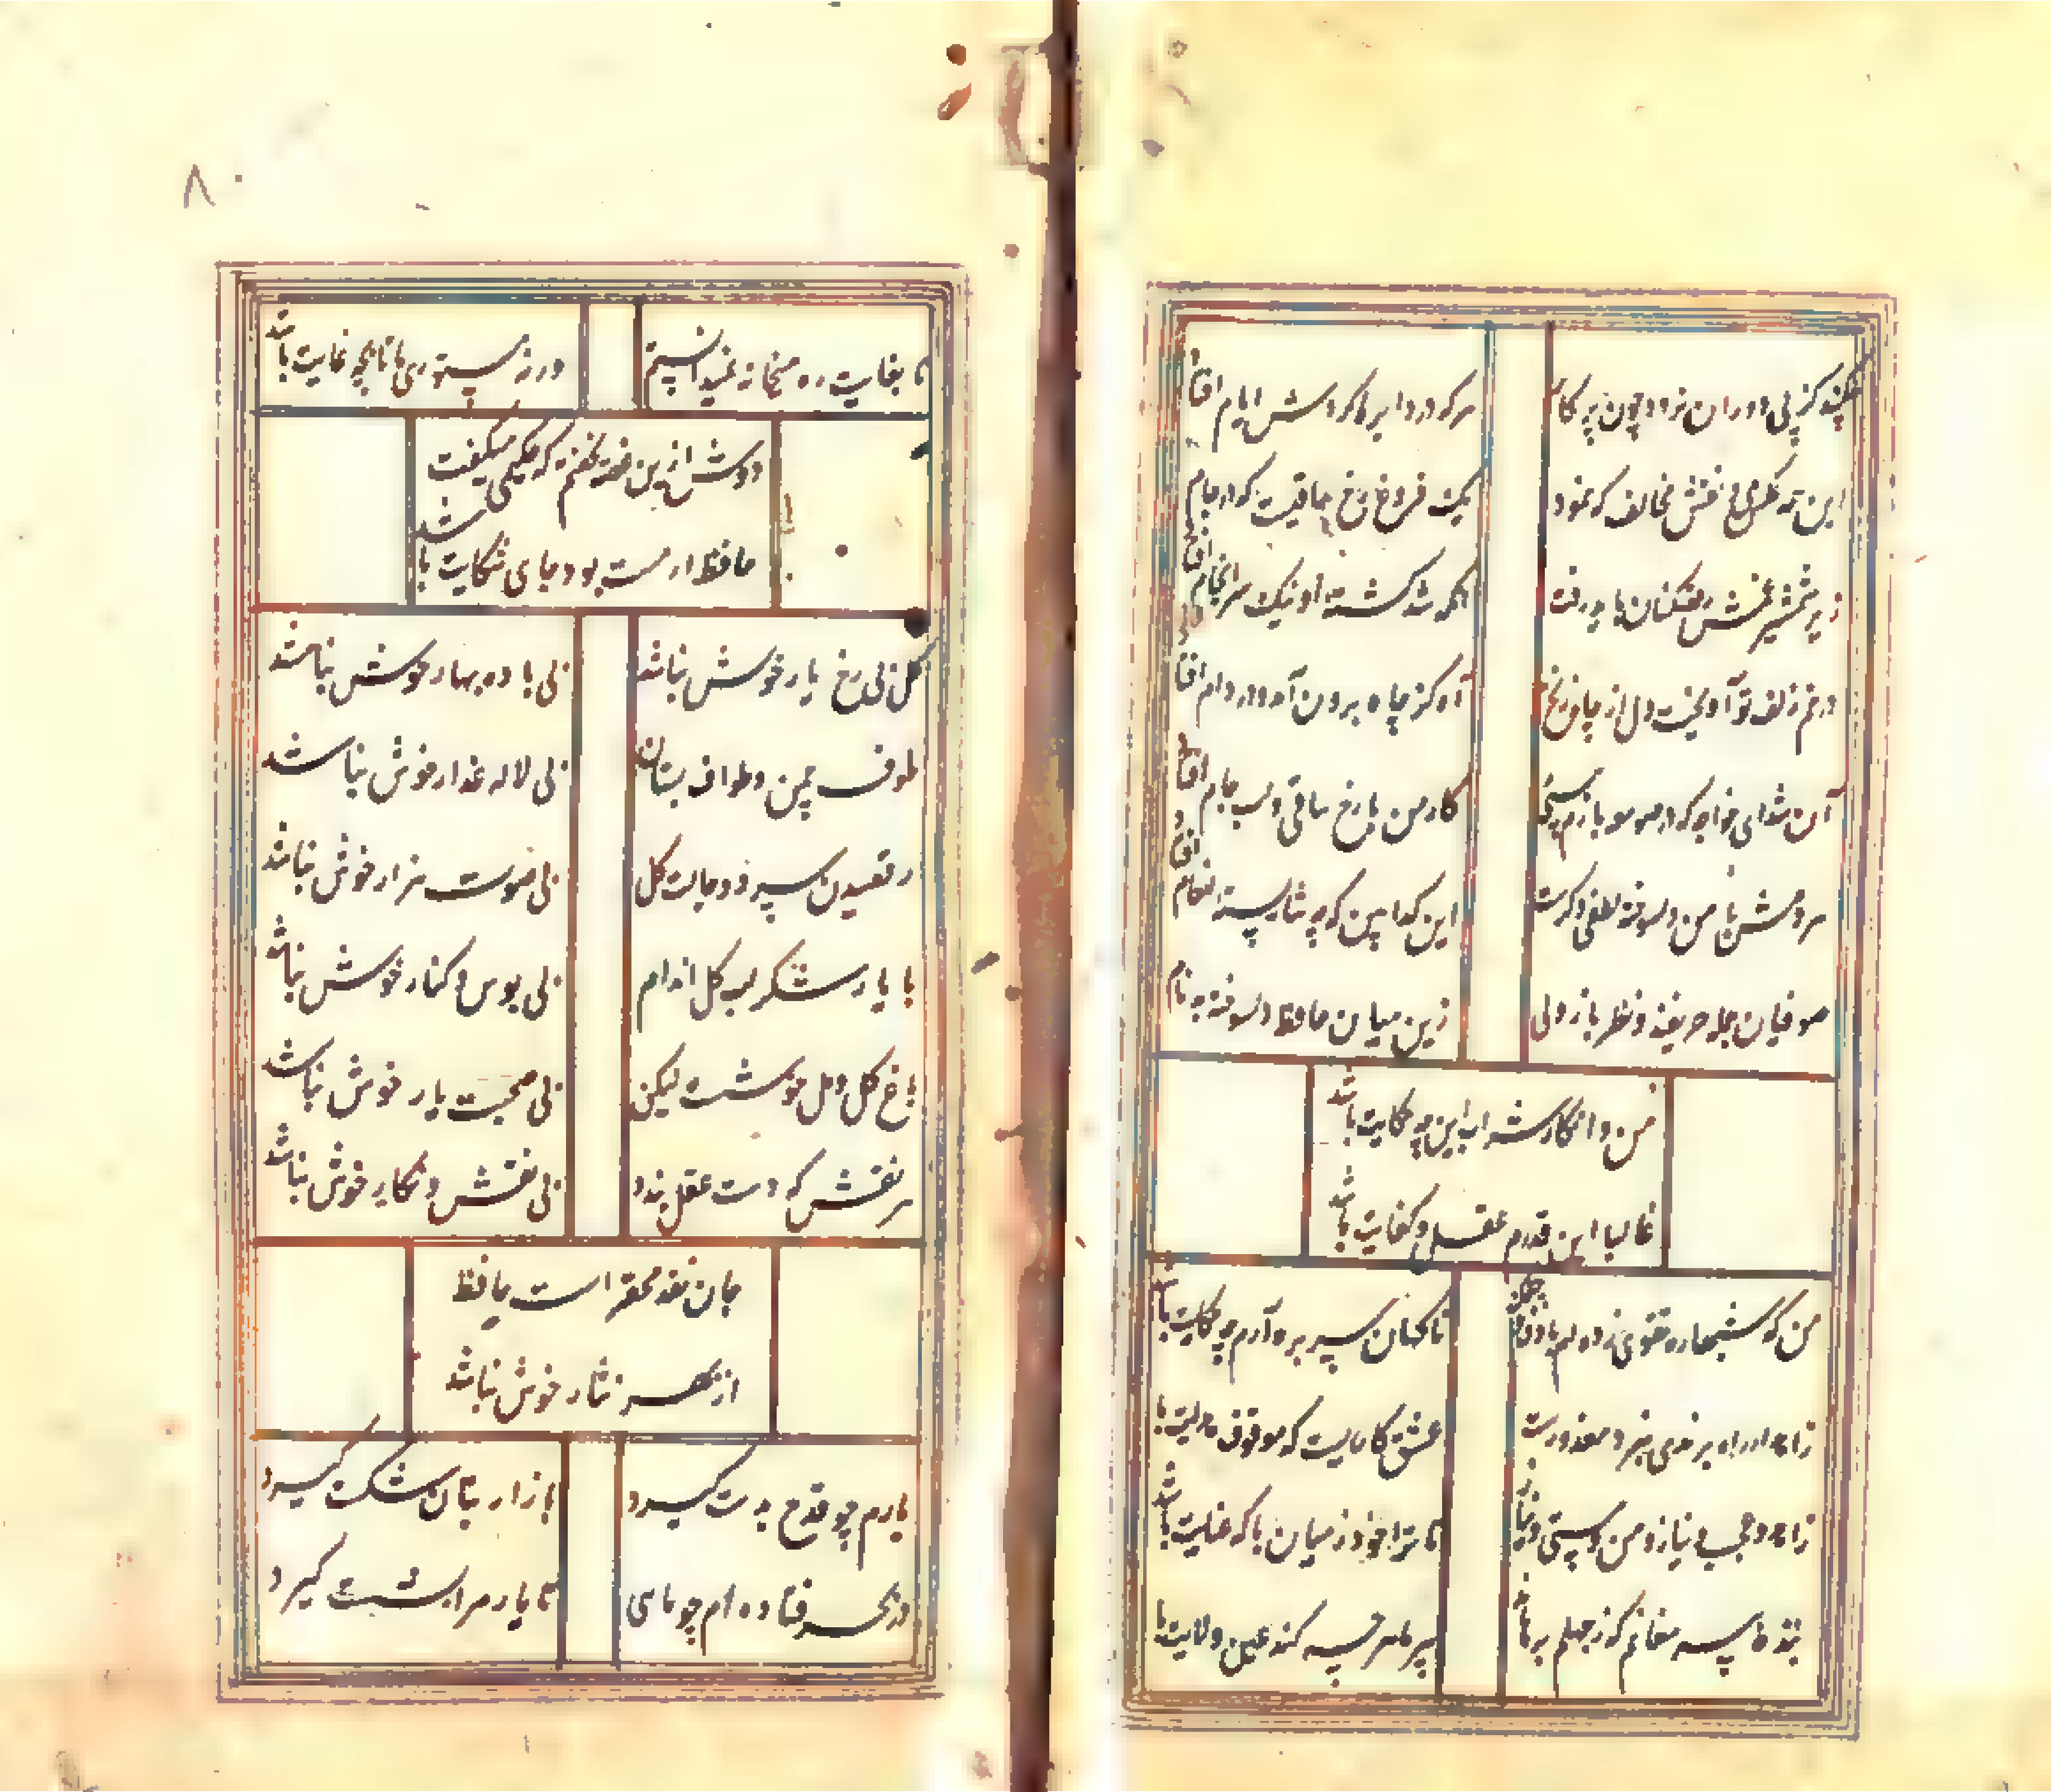 چکند کز پی دوران نرود چون پرکار
هر که در دایره کردش ایام افتاد
این همه عکس می و نقش مخالف که نمود
یک فروغ رخ ساقیست که در جام افتاد
زیر شمشیر غمش رقص کنان باید رفت
انکه شد کشته او نیک سرانجام افتاد
در خم زلف تو آویخت دل از چاه زنخ
آه کز چاه برون آمد و در دام افتاد
آن شد ای خواجه که در صومعه بازم بینی
کار من با رخ ساقی و لب جام افتاد
هر دمش با من دلسوخته لطفی دکرست
این کدا بین که چه شایسته انعام افتاد
صوفیان جمله حریفند و نظر باز ولی
زین میان حافظ دلسوخته بدنام
من و انکار شراب این چه حکایت باشد
غالبا این قدرم عقل و کفایت باشد
من که شبها ره تقوی زده ام با دف و چنک
ناکهان سر بره آرم چه حکایت باشد
زاهد ار راه برندی نبرد معذورست
عشق کاریست که موقوف هدایت با
زاهد و عجب و نماز و من و مستی و نیاز
تا ترا خود ز میان با که عنایت باشد
بنده پیر مغانم که ز جهلم برهاند
پیر ما هر چه کند عین ولایت با
تا بغایت ره میخانه نمیدانستم
ورنه مستوری ما تا بچه غایت باشد
دوش ازین غصه نخفتم که حکیمی میکفت
حافظ ار مست بود جای شکایت باشد
کل بی رخ یار خوش نباشد
بی باده بهار خوش نباشد
طرف چمن و طواف بستان
بی لاله عذار خوش نباشد
رقصیدن سرو و حالت کل
بی صوت هزار خوش نباشد
با یار شکر لب کل اندام
بی بوس و کنار خوش نباشد
باغ کل و مل خوشست لیکن
بی صحبت یار خوش نباشد
هر نقش که دست عقل بندد
بی نقش و نکار خوش نباشد
جان نقد محقر است حافظ
از بهر نثار خوش نباشد
یارم چو قدح بدست کیرد
بازار بتان شکست کیرد
در بحر فتاده ام چو ماهی
تا یار مرا بشست کیرد